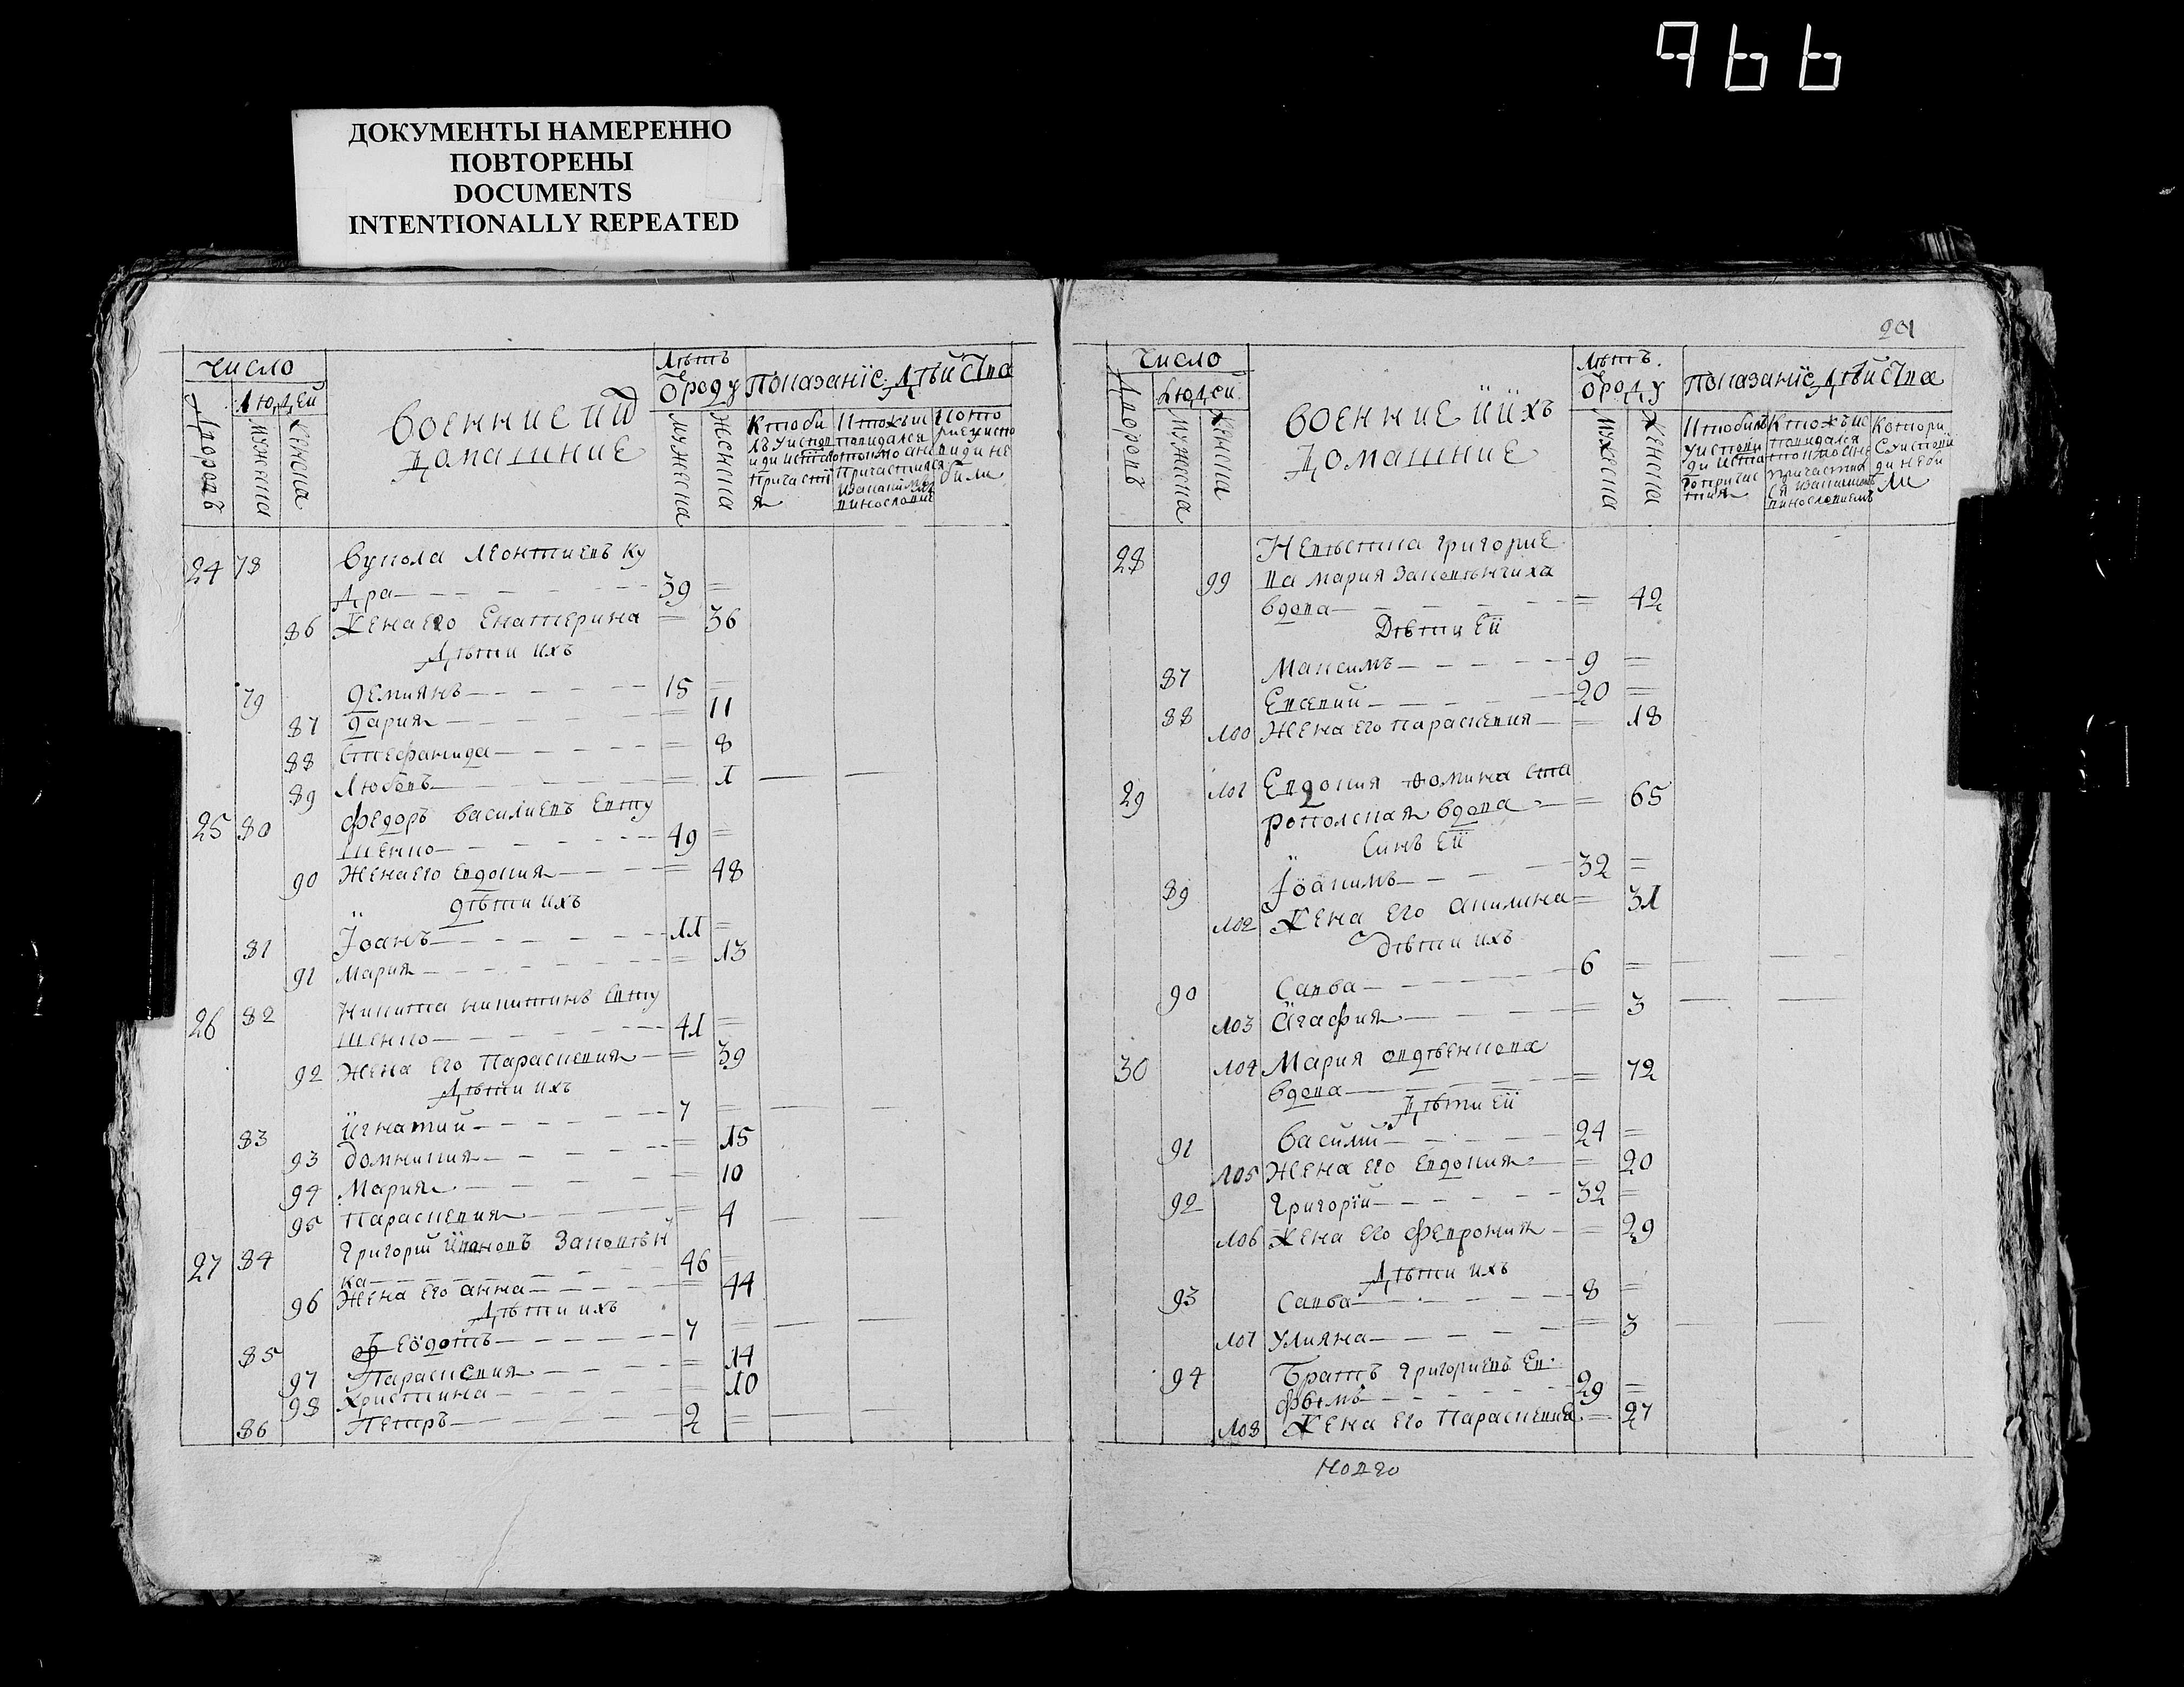 966
ДОКУМЕНТЫ НАМЕРЕННО
ПОВТОРЕНЫ
DOCUMENTS
INTENTIONALLY REPEATED
Число
Людей
Дворовъ
Мужеска
Женска
Военние и ихъ
Домашние
Лѣтъ
Ѿроду
Мужеска
Женска
Показаніе Дѣйства
24 78 Вукола Леонтиевъ Ку
дра 39 =
86 Жена его Екатерина = 36
Дѣти ихъ
79 Демиянъ 15 =
87 Дария = 11
88 Стефанида = 8
89 Любовъ = 1
25 80 Федоръ Василиевъ Евту
шенко 49 =
90 Жена его Евдокия = 48
Дѣти ихъ
81 Іоанъ 11 =
91 Мария = 13
26 82 Никита Никитинъ Евту
шенко 41 =
92 Жена его Параскевия = 39
Дѣти ихъ
83 Игнатий 7 =
93 Домникия = 15
94 Мария = 10
95 Параскевия = 4
27 84 Григорий Ивановъ Заковѣн
ка 46 =
96 Жена его Анна = 44
Дѣти ихъ
85 Феодотъ 7 =
97 Параскевия = 14
98 Христина = 10
86 Петръ 2 =
201
Число
Людей
Дворовъ
Мужеска
Женска
Военние и ихъ
Домашние
Лѣтъ
Ѿроду
Мужеска
Женска
Показаніе Дѣйства
28 Невѣстка Григорие
99 ва Мария Заковѣнчиха
вдова = 42
Дѣти ей
87 Максимъ 9 =
88 Евсевий 20 =
100 Жена его Параскевия = 18
29 101 Евдокия Фомина Ста
роколская вдова = 65
Синъ ей
89 Іоакимъ 32 =
102 Жена его Акилина = 31
Дѣти ихъ
90 Савва 6 =
103 Агафия = 3
30 104 Мария Авдѣенкова
вдова = 72
Дѣти ей
91 Василий 24 =
105 Жена его Евдокия = 20
92 Григорій 32 =
106 Жена его Феврония = 29
Дѣти ихъ
93 Савва 8 =
107 Улияна = 3
94 Братъ Григориевъ Ев
фимъ 29 =
108 Жена его Параскевиа = 27